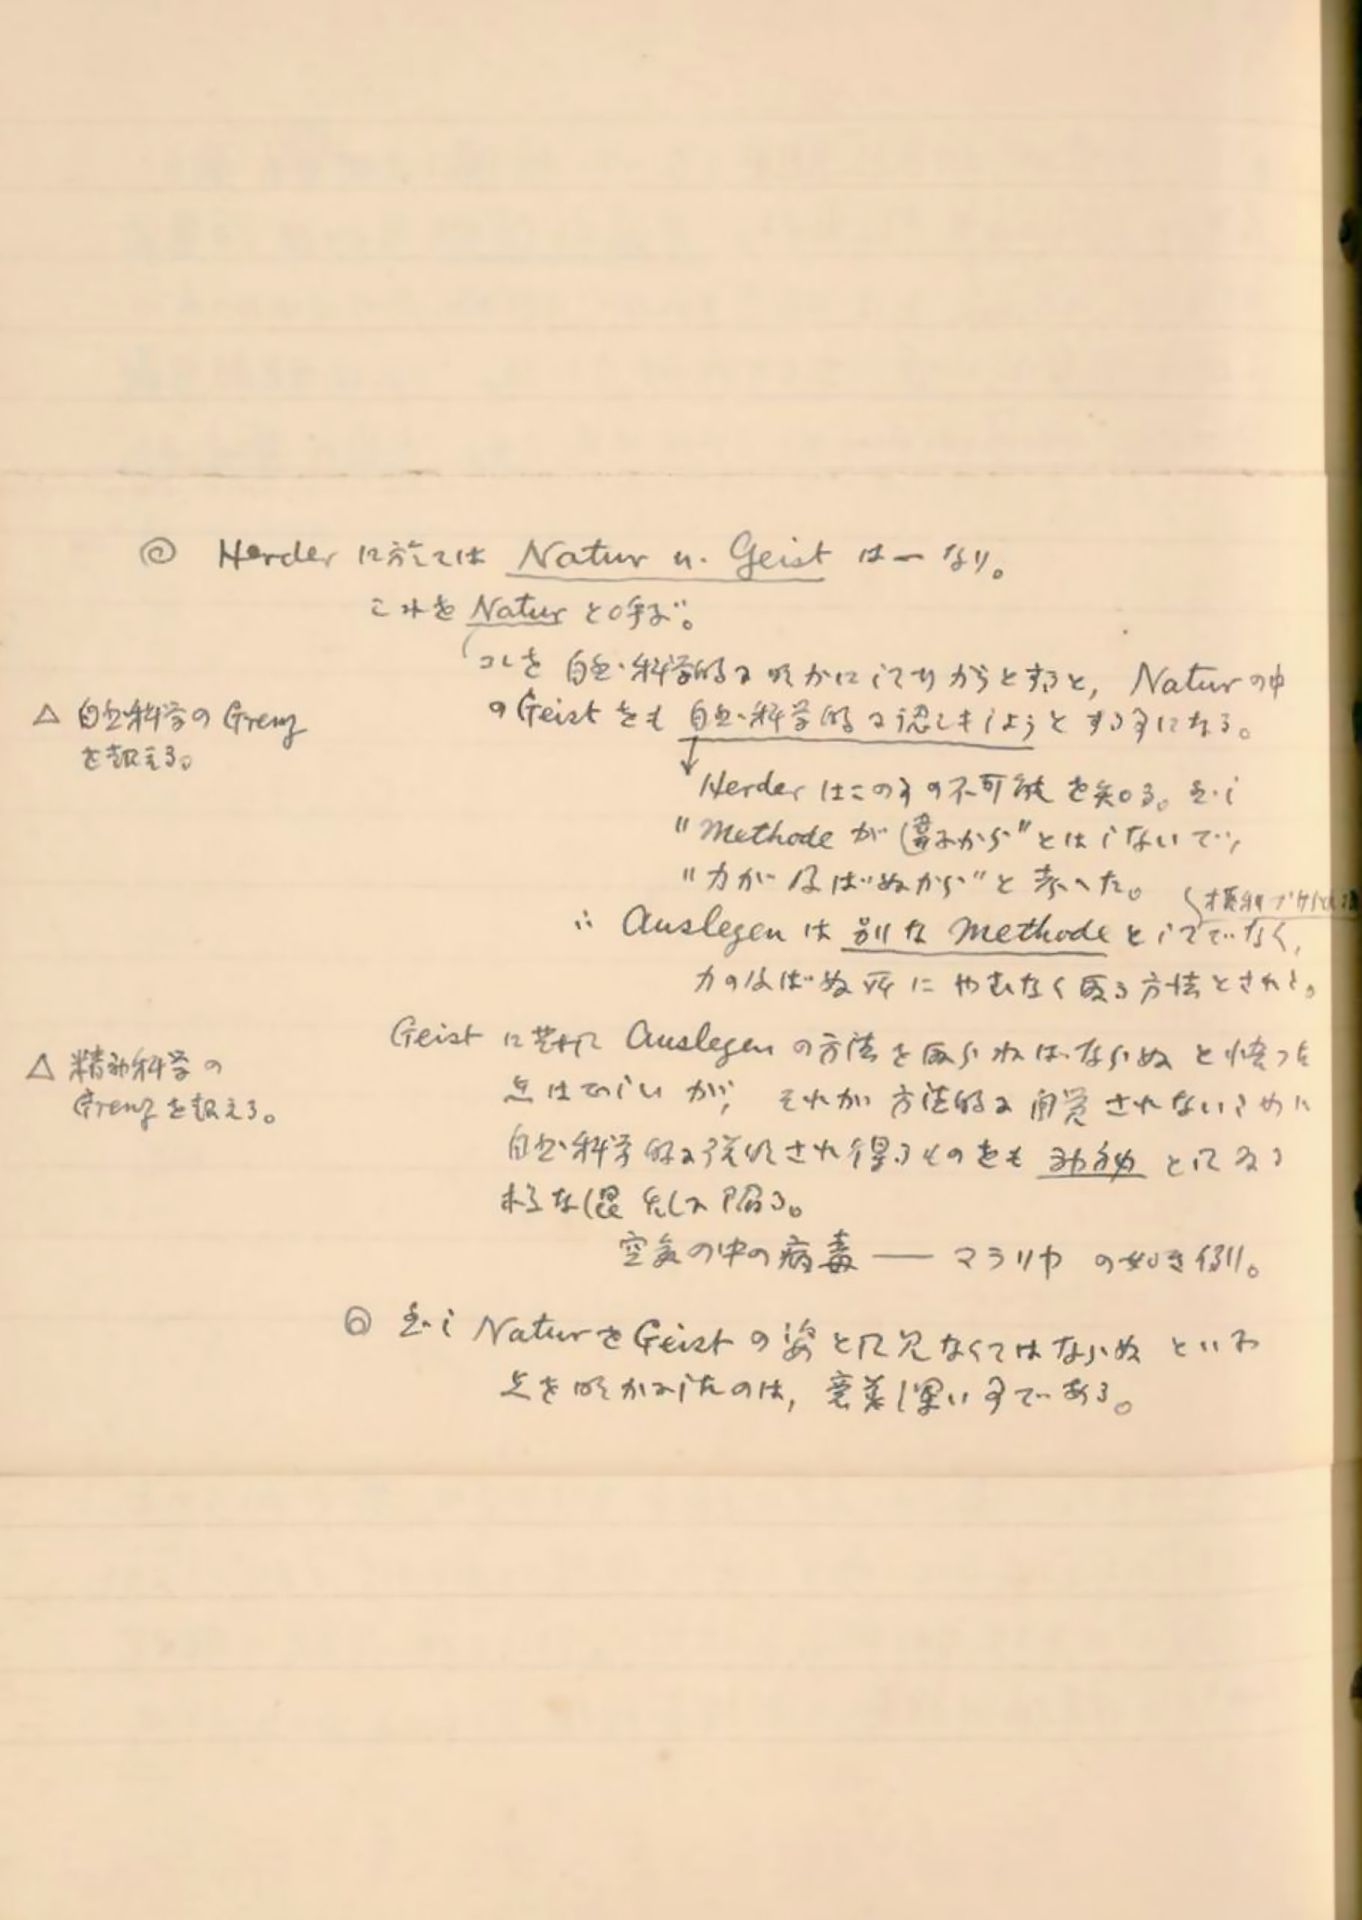 ◎ Herder に於ては Natur u. Geist は一なり。
これを Natur と呼ぶ。
コレを 自然科学的に明かにしてわからうとすると, Natur の中
の Geist をも 自然科学的に認しきしようと する事になる。
△ 自然科学の Grenz
を超える。
Herder はこの事の不可能を知る。然し
"Methode が違ふから"とはしないで,
"力が及ばぬから"と考へた。
∴ Auslegen は 別な Methode としてでなく,
力の及ばぬ所に やむなく取る方法とされる。
Geist に対して Auslegen の方法を取らねばならぬ と悟つた
点はよろしいが, それが 方法的に自覚されないために
△ 精神科学の
Grenz を超える。
自然科学的に説明され得るものをも 神秘 として見る
様な混乱に陥る。
空気の中の病毒 —— マラリヤ の如き例。
◎ 然し Natur を Geist の姿として見なくてはならぬ といふ
点を明かにしたのは, 意義深い事である。